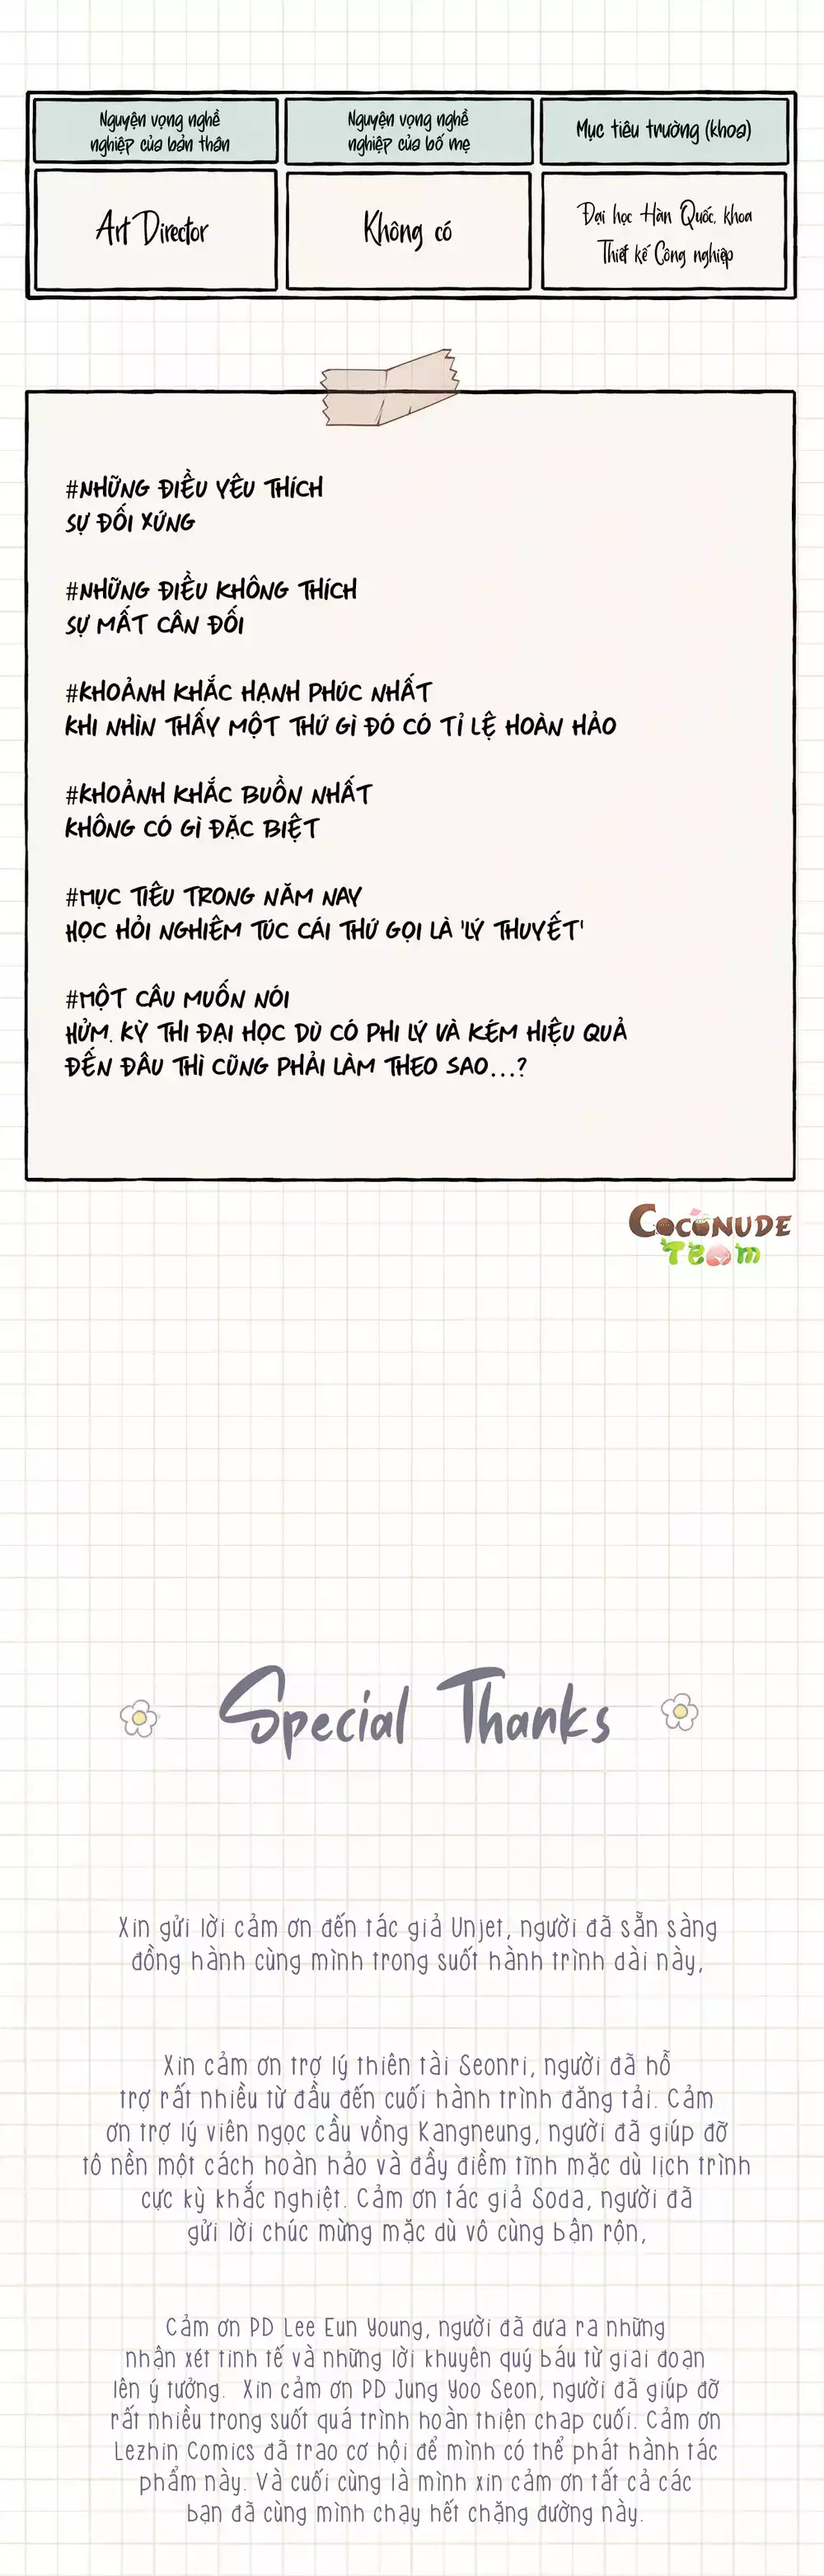 Nguyện vọng nghề
nghiệp của bản thân
Nguyện vọng nghề
nghiệp của bố mẹ
Mục tiêu trường (khoa)
Art Director
Không có
Đại học Hàn Quốc, khoa
Thiết kế Công nghiệp
#NHỮNG ĐIỀU YÊU THÍCH
SỰ ĐỐI XỨNG
#NHỮNG ĐIỀU KHÔNG THÍCH
SỰ MẤT CÂN ĐỐI
#KHOẢNH KHẮC HẠNH PHÚC NHẤT
KHI NHÌN THẤY MỘT THỨ GÌ ĐÓ CÓ TỈ LỆ HOÀN HẢO
#KHOẢNH KHẮC BUỒN NHẤT
KHÔNG CÓ GÌ ĐẶC BIỆT
#MỤC TIÊU TRONG NĂM NAY
HỌC HỎI NGHIÊM TÚC CÁI THỨ GỌI LÀ 'LÝ THUYẾT'
#MỘT CÂU MUỐN NÓI
HỬM. KỲ THI ĐẠI HỌC DÙ CÓ PHI LÝ VÀ KÉM HIỆU QUẢ
ĐẾN ĐÂU THÌ CŨNG PHẢI LÀM THEO SAO...?
COCONUDE
Team
Special Thanks
Xin gửi lời cảm ơn đến tác giả Unjet, người đã sẵn sàng
đồng hành cùng mình trong suốt hành trình dài này,
Xin cảm ơn trợ lý thiên tài Seonri, người đã hỗ
trợ rất nhiều từ đầu đến cuối hành trình đăng tải. Cảm
ơn trợ lý viên ngọc cầu vồng Kangneung, người đã giúp đỡ
tô nền một cách hoàn hảo và đầy điềm tĩnh mặc dù lịch trình
cực kỳ khắc nghiệt. Cảm ơn tác giả Soda, người đã
gửi lời chúc mừng mặc dù vô cùng bận rộn,
Cảm ơn PD Lee Eun Young, người đã đưa ra những
nhận xét tinh tế và những lời khuyên quý báu từ giai đoạn
lên ý tưởng. Xin cảm ơn PD Jung Yoo Seon, người đã giúp đỡ
rất nhiều trong suốt quá trình hoàn thiện chap cuối. Cảm ơn
Lezhin Comics đã trao cơ hội để mình có thể phát hành tác
phẩm này. Và cuối cùng là mình xin cảm ơn tất cả các
bạn đã cùng mình chạy hết chặng đường này.